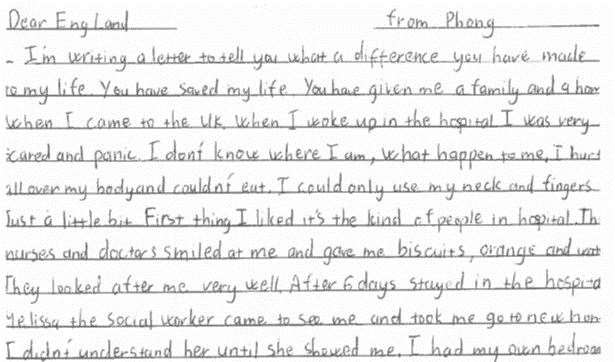 Dear England from Phong
- I'm writing a letter to tell you what a difference you have made
to my life. You have saved my life. You have given me a family and a hom
when I came to the UK. When I woke up in the hospital I was very
scared and panic. I don't know where I am, what happen to me, I hurt
all over my body and couldn't eat. I could only use my neck and fingers
Just a little bit First thing I liked it's the kind of people in hospital. Th
nurses and doctors smiled at me and gave me biscuits, orange and wat
They looked after me very well. After 6 days stayed in the hospita
Melissa the social worker came to see me and took me go to new hom
I didn't understand her until she showed me. I had my own bedroom